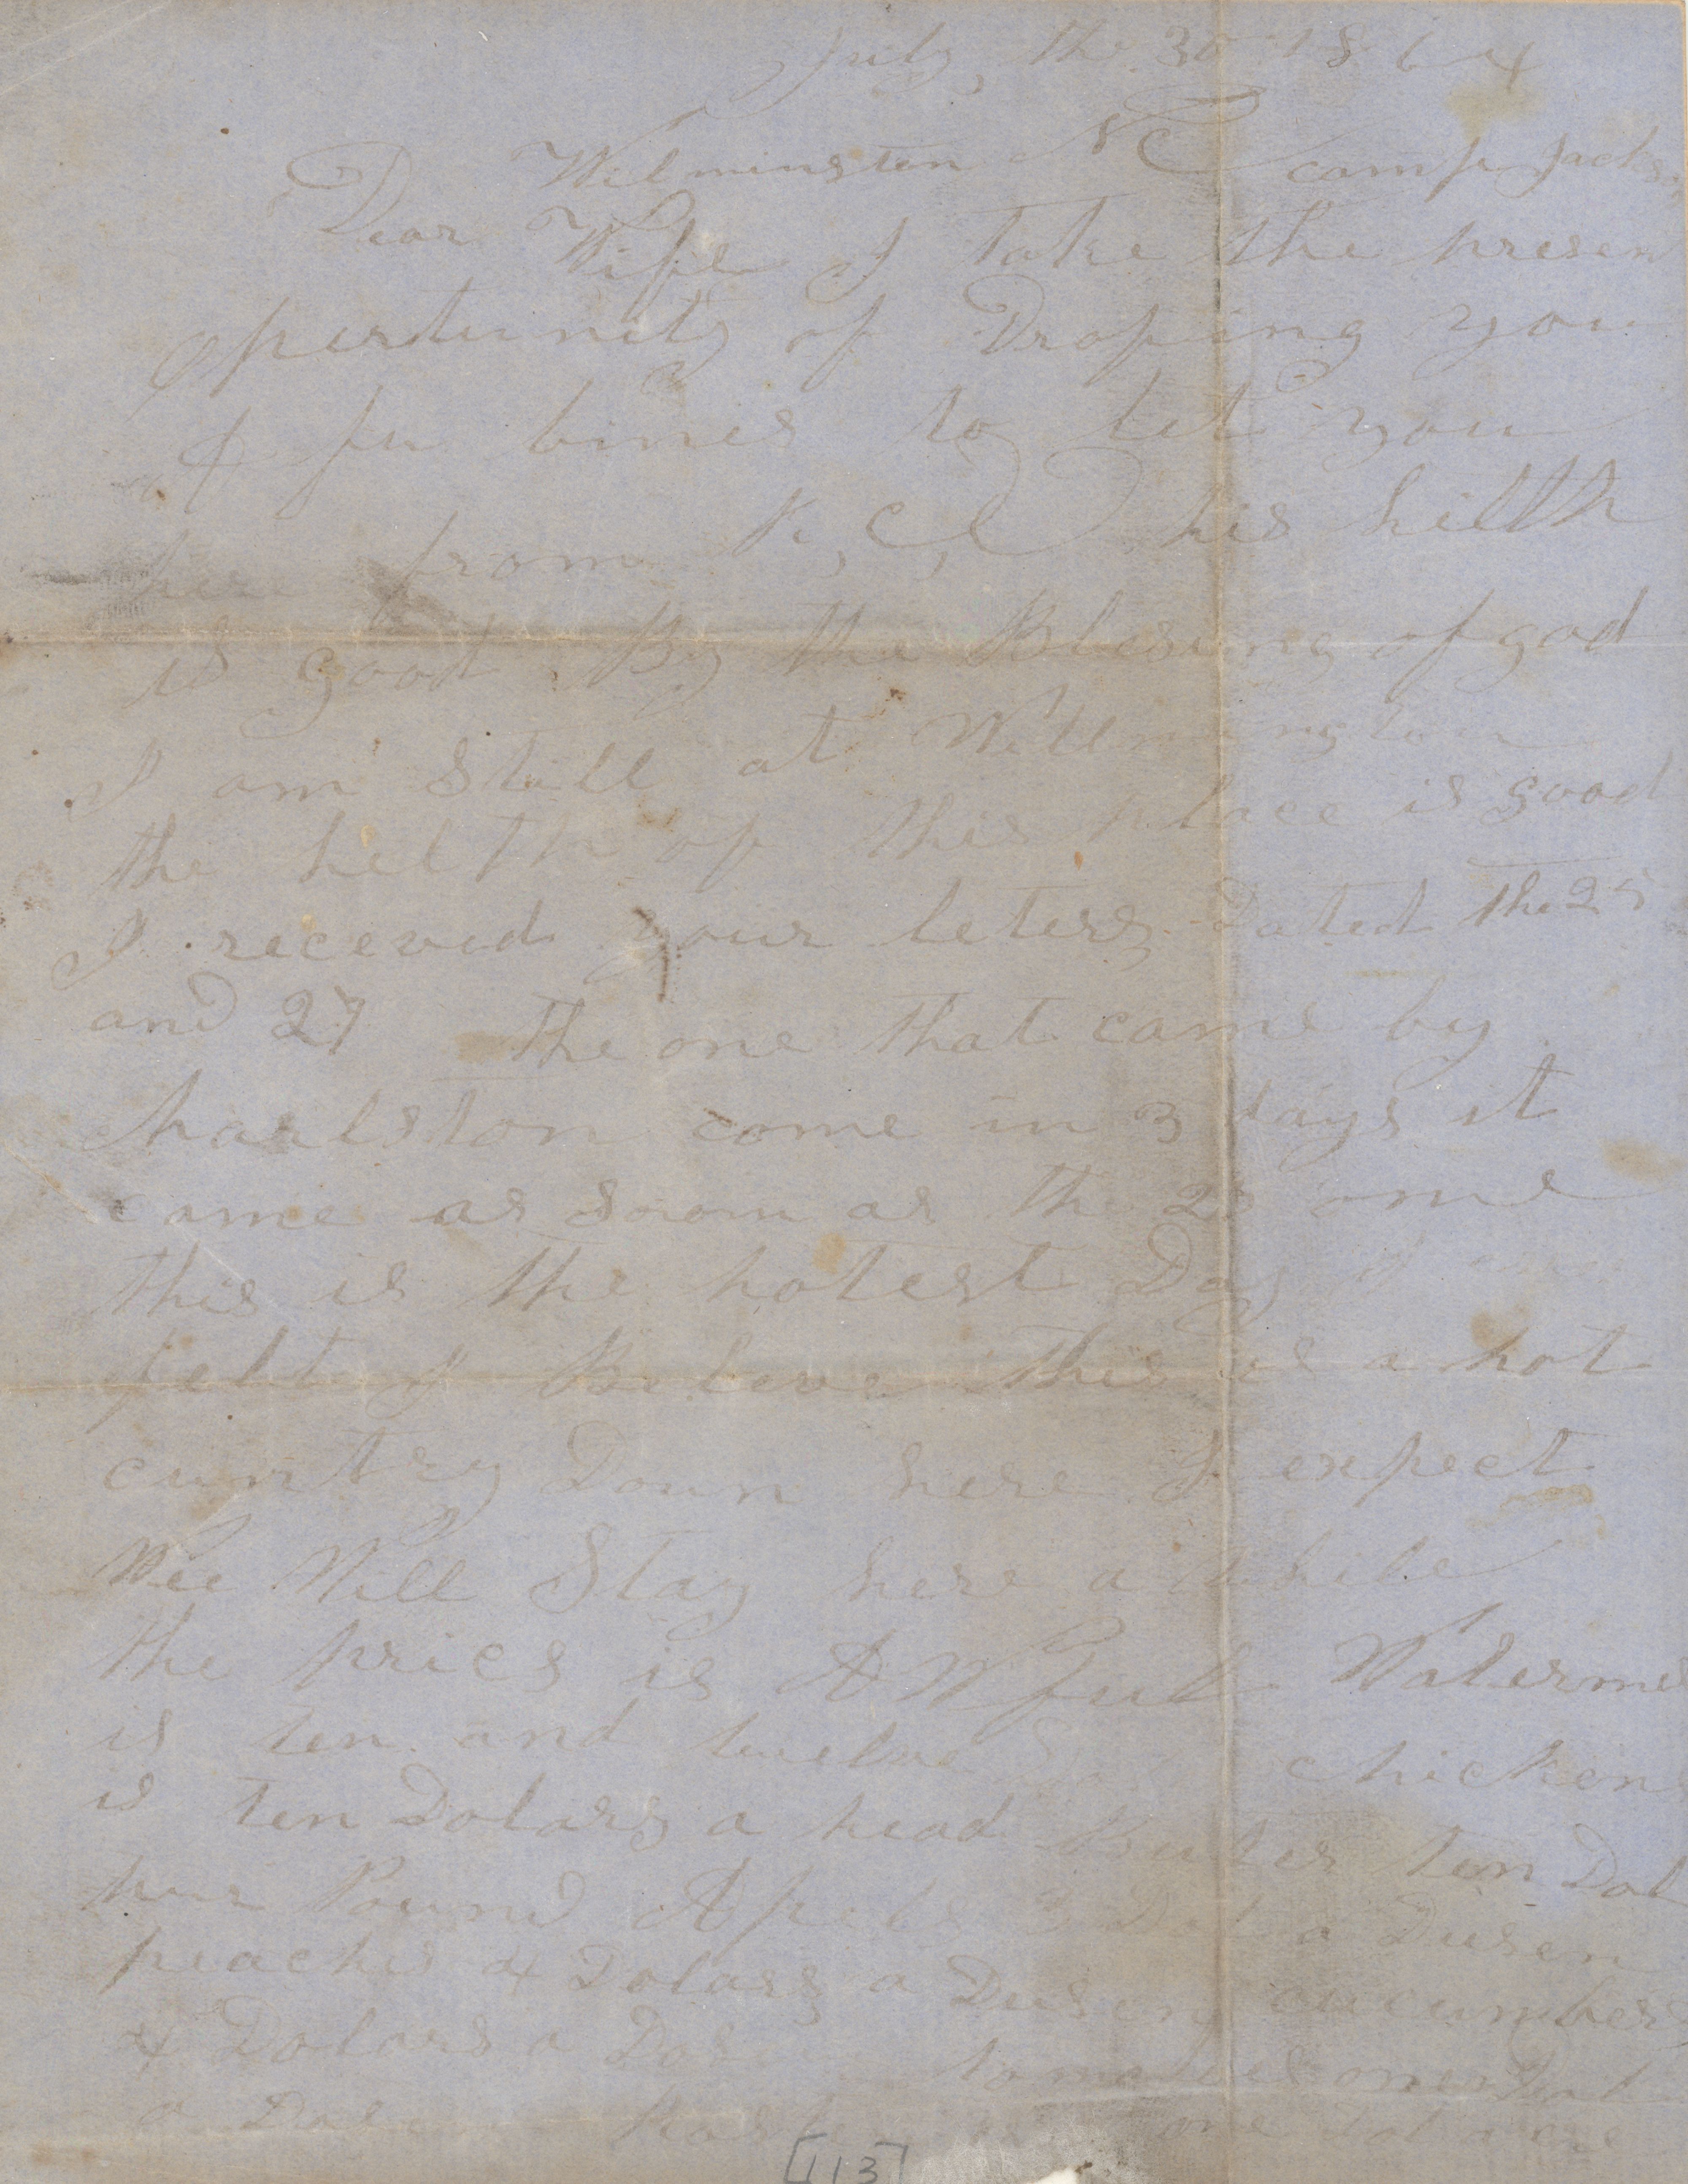 July, the 30 1864
Wilminsten NC camp Jackson
Dear Wife I take the presen
opertunity of Droping you
A fu lines to let you
here from K, C, C his hilth
is good By the Blesing of god
I am Still at Willmington
the hilth of this place is good
I receved your leters Dated the 25
and 27 the one that came by
charlston come in 3 days it
came as soon as the 25 one
this is the hotest Day I ever
felt I Beleve this is a hot
cuntry Down here I expect
Wee Will Stay here a While
the prics is AWful Watermel
is ten and twelve chickens
is ten Dolars a head Buter ten Dol
pur Pound Apels 3 Dol a Dusen
peaches 4 Dolars a Dusen cucumbers
4 Dolars a Dosen tomatoes one Dol
a one Dol
[113]